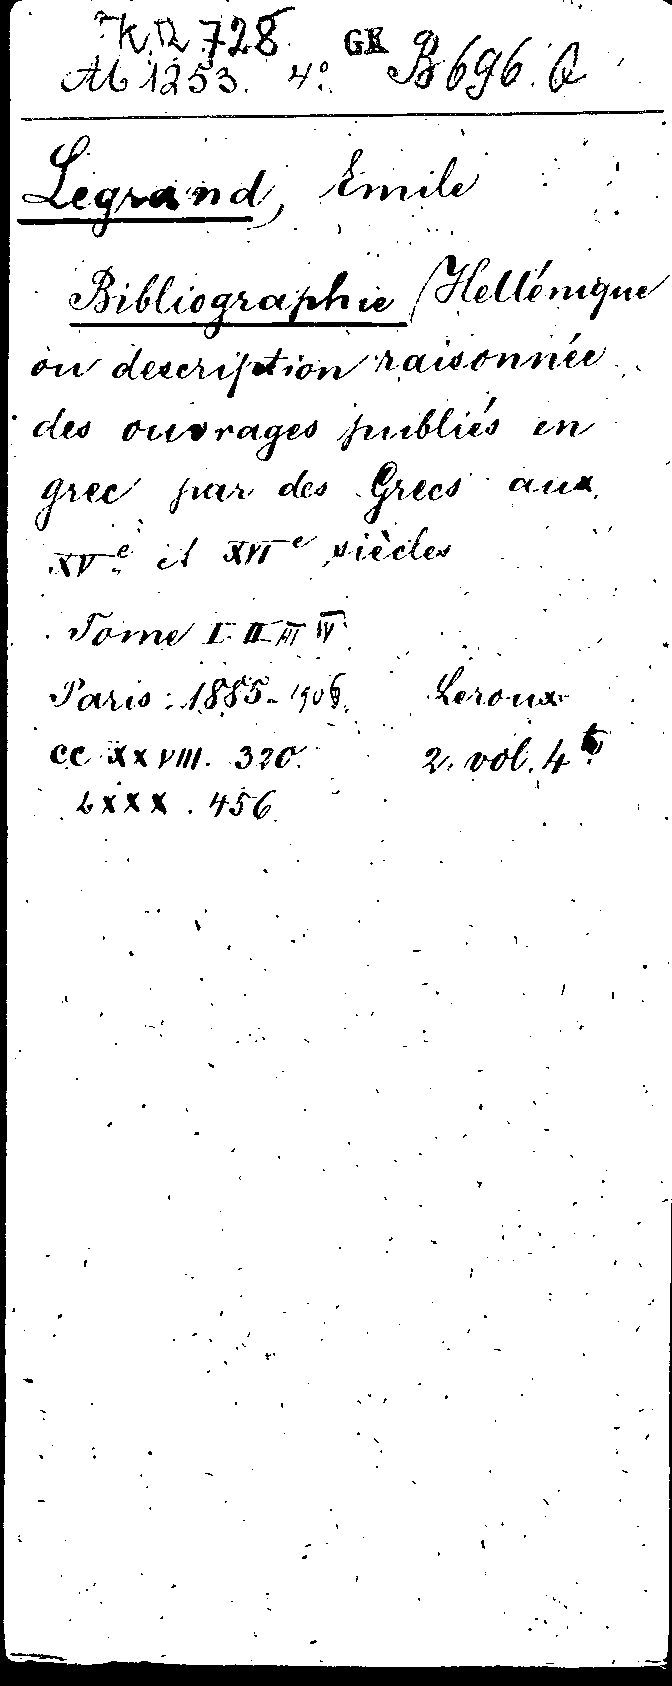 KΩ 728 GR B 696. Q
Ab 1253. 4°.
Legrand, Emile
Bibliographie Hellénique
ou description raisonnée
des ouvrages publiés en
grec par des Grecs aux
XVe et XVIe siècles
Tome I II III IV
Paris: 1885-1906. Leroux
CCXXVIII. 320. 2. vol. 4°
LXXX. 456